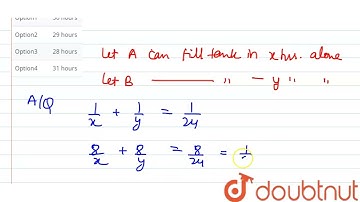 Option1 30 hours
Option2 29 hours
Option3 28 hours
Option4 31 hours
Let A can fill tank in x hrs. alone
Let B —— " — y " "
A/Q
1/x + 1/y = 1/24
8/x + 8/y = 8/24 = 1/
doubtnut